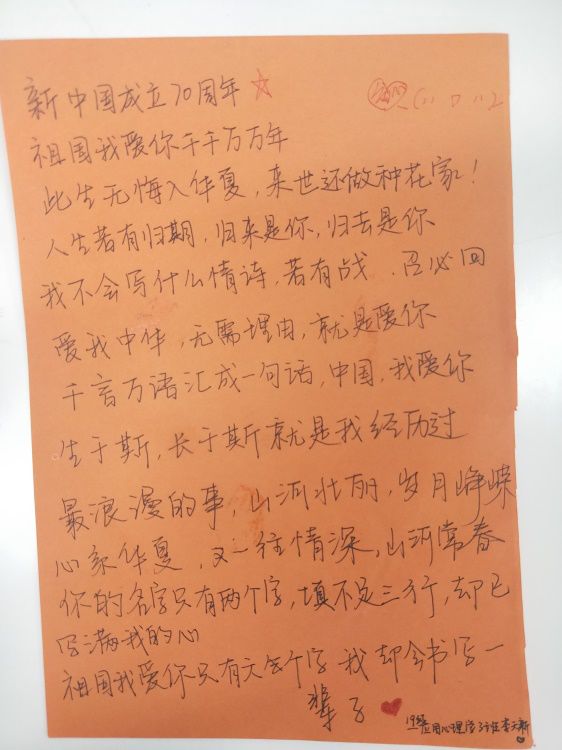 新中国成立70周年
祖国我爱你千千万万年
此生无悔入华夏，来世还做种花家！
人生若有归期，归来是你，归去是你
我不会写什么情诗，若有战，召必回
爱我中华，无需理由，就是爱你
千言万语汇成一句话，中国，我爱你
生于斯，长于斯就是我经历过
最浪漫的事，山河壮丽，岁月峥嵘
心系华夏，又一往情深，山河常春
你的名字只有两个字，填不足三行，却已
写满我的心
祖国我爱你只有六个字 我却会书写一
辈子
应用心理学